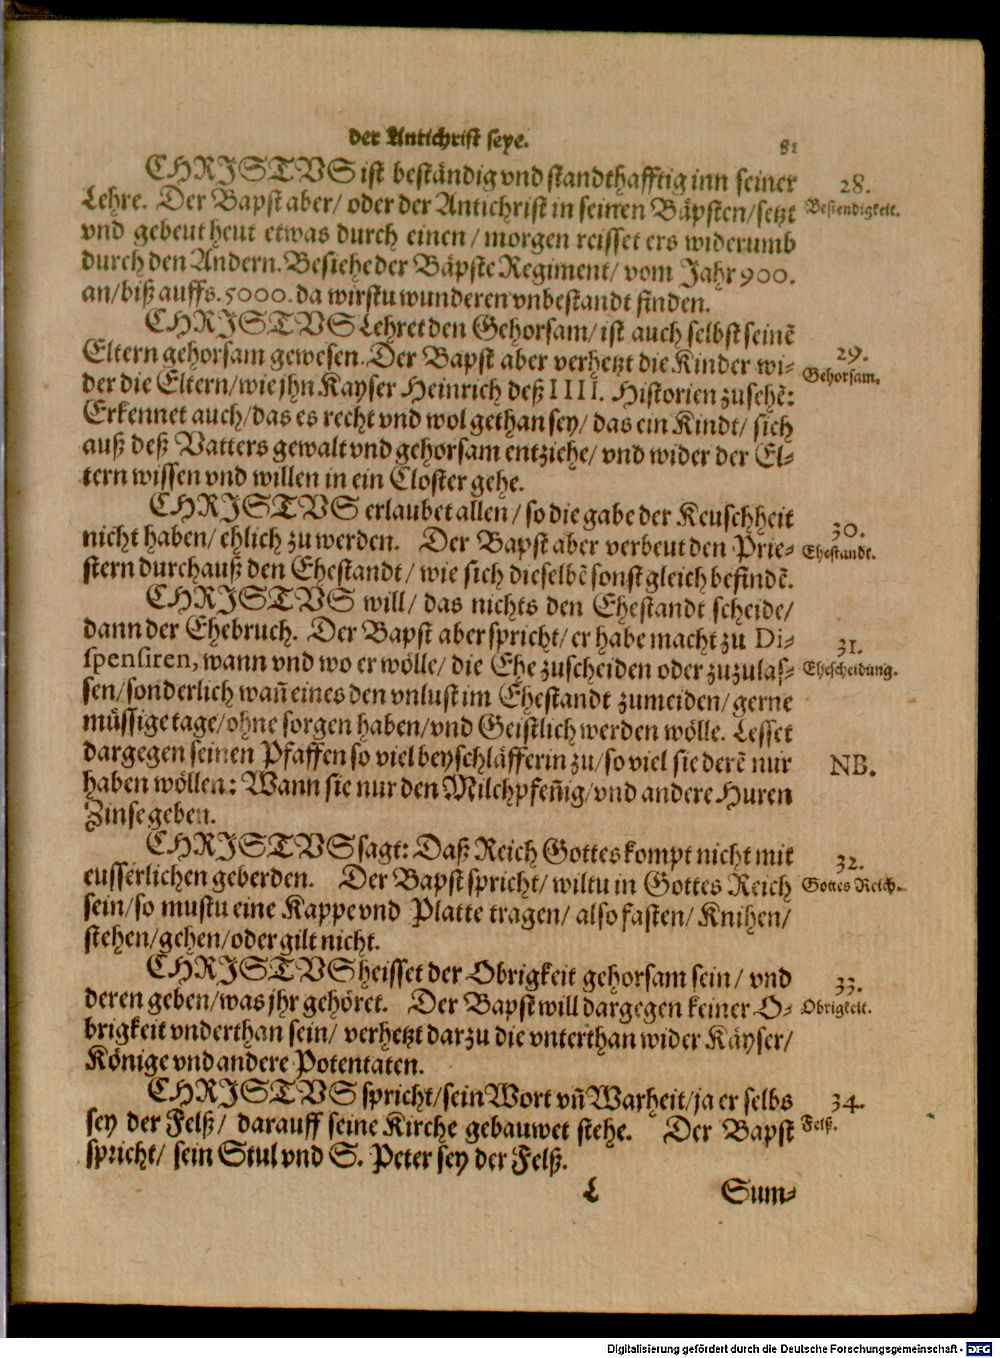 der Antichrist seye. 81
CHRISTVS ist beständig vnd standthafftig inn seiner
28.
Lehre. Der Bapst aber/ oder der Antichrist in seinen Bäpsten/ setzt
Bestendigkeit.
vnd gebeut heut etwas durch einen/ morgen reisset ers widerumb
durch den Andern. Besiehe der Bäpste Regiment/ vom Jahr 900.
an/ biß auffs. 5000. da wirstu wunderen vnbestandt finden.
CHRISTVS Lehret den Gehorsam/ ist auch selbst seinē
Eltern gehorsam gewesen. Der Bapst aber verhetzt die Kinder wi-
29.
der die Eltern/ wie jhn Kayser Heinrich deß IIII. Historien zusehē:
Gehorsam.
Erkennet auch/ das es recht vnd wol gethan sey/ das ein Kindt/ sich
auß deß Vatters gewalt vnd gehorsam entziehe/ vnd wider der El-
tern wissen vnd willen in ein Closter gehe.
CHRISTVS erlaubet allen/ so die gabe der Keuschheit
30.
nicht haben/ ehlich zu werden. Der Bapst aber verbeut den Prie-
Ehestandt.
stern durchauß den Ehestandt/ wie sich dieselbē sonst gleich befindē.
CHRISTVS will/ das nichts den Ehestandt scheide/
dann der Ehebruch. Der Bapst aber spricht/ er habe macht zu Di-
31.
spensiren, wann vnd wo er wölle/ die Ehe zuscheiden oder zuzulas-
Ehescheidung.
sen/ sonderlich wañ eines den vnlust im Ehestandt zumeiden/ gerne
müssige tage/ ohne sorgen haben/ vnd Geistlich werden wölle. Lesset
dargegen seinen Pfaffen so viel beyschläfferin zu/ so viel sie derē nur
NB.
haben wöllen: Wann sie nur den Milchpfeñig/ vnd andere Huren
Zinse geben.
CHRISTVS sagt: Daß Reich Gottes kompt nicht mit
32.
eusserlichen geberden. Der Bapst spricht/ wiltu in Gottes Reich
Gottes Reich.
sein/ so mustu eine Kappe vnd Platte tragen/ also fasten/ Knihen/
stehen/ gehen/ oder gilt nicht.
CHRISTVS heisset der Obrigkeit gehorsam sein/ vnd
33.
deren geben/ was jhr gehöret. Der Bapst will dargegen keiner O-
Obrigkeit.
brigkeit vnderthan sein/ verhetzt darzu die vnterthan wider Käyser/
Könige vnd andere Potentaten.
CHRISTVS spricht/ sein Wort vñ Warheit/ ja er selbs
34.
sey der Felß/ darauff seine Kirche gebauwet stehe. Der Bapst
Felß.
spricht/ sein Stul vnd S. Peter sey der Felß.
L Sum-
Digitalisierung gefördert durch die Deutsche Forschungsgemeinschaft - DFG